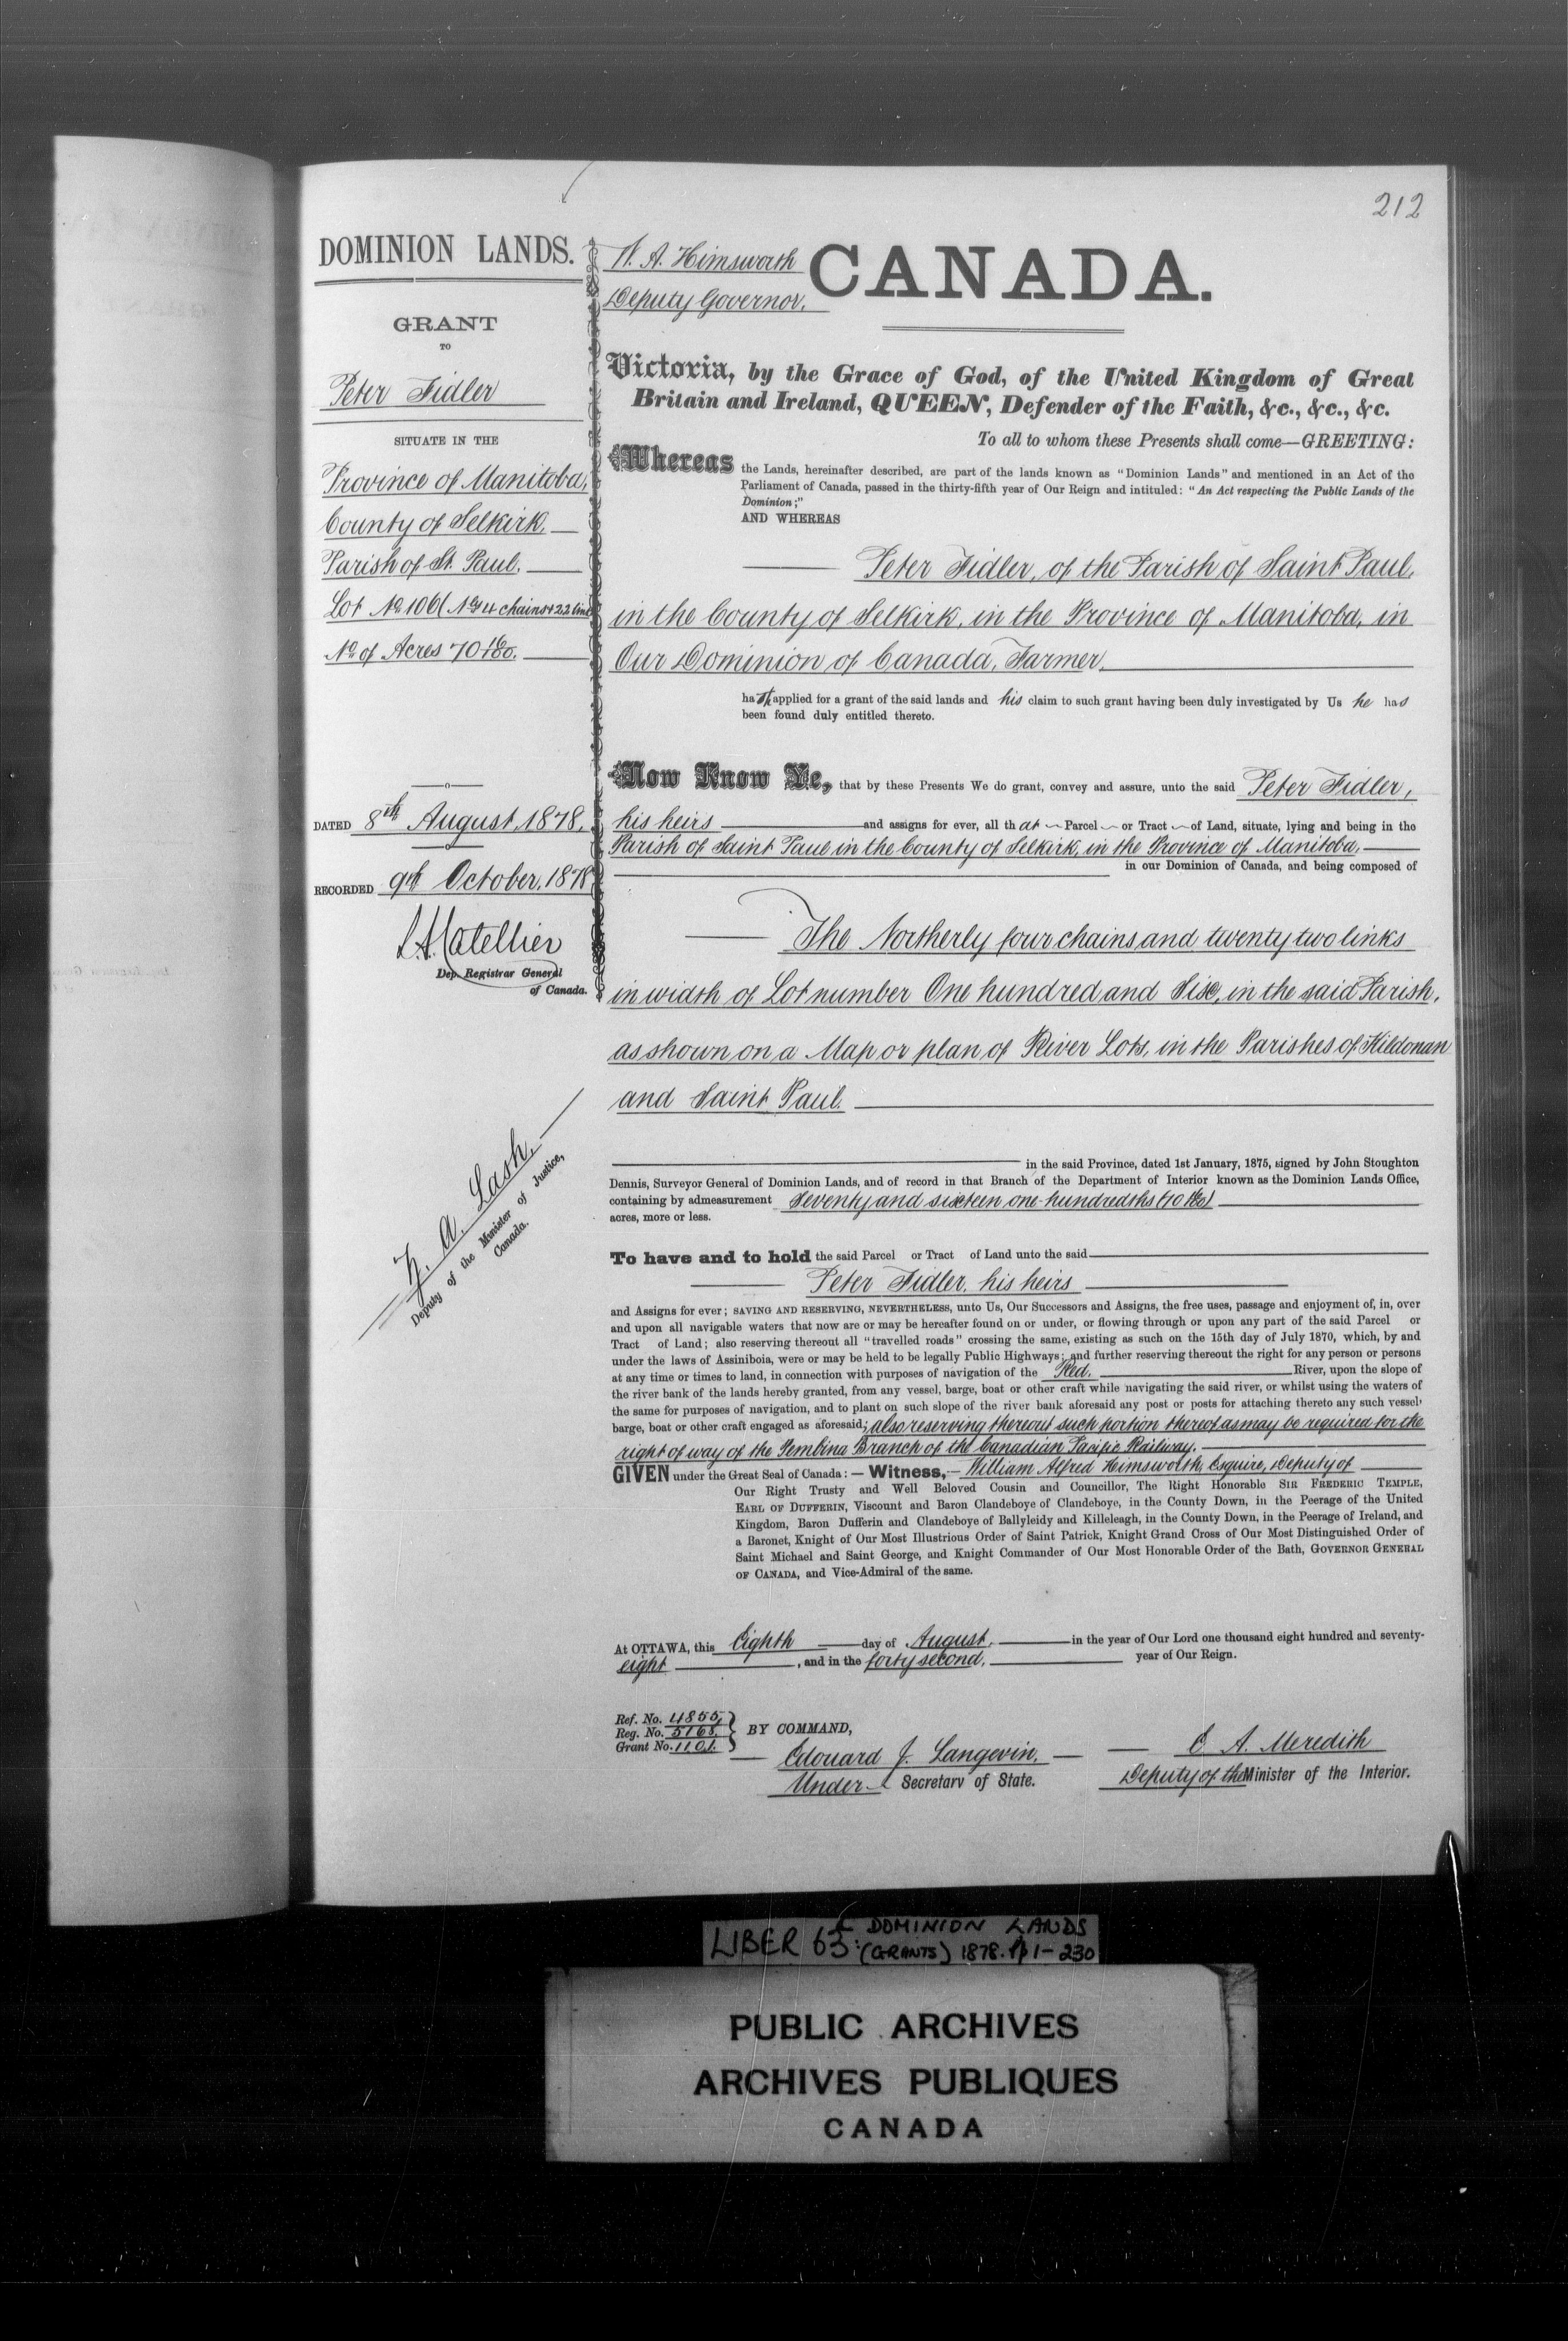 212
DOMINION LANDS.
GRANT
TO
Peter Fidler
SITUATE IN THE
Province of Manitoba,
County of Selkirk.
Parish of St. Paul.
Lot No 106 (Nly 4 chains + 22 links
No of Acres 70 16/100.
DATED 8th August, 1878.
RECORDED 9th October, 1878
L. A. Catellier
Dep. Registrar General
of Canada.
Z. A. Lash.
Deputy of the Minister of Justice,
Canada.
W. A. Himsworth
Deputy Governor.
CANADA.
Victoria, by the Grace of God, of the United Kingdom of Great
Britain and Ireland, QUEEN, Defender of the Faith, &c., &c., &c.
To all to whom these Presents shall come—GREETING:
Whereas the Lands, hereinafter described, are part of the lands known as "Dominion Lands" and mentioned in an Act of the
Parliament of Canada, passed in the thirty-fifth year of Our Reign and intituled: "An Act respecting the Public Lands of the
Dominion;"
AND WHEREAS
Peter Fidler, of the Parish of Saint Paul,
in the County of Selkirk, in the Province of Manitoba, in
Our Dominion of Canada, Farmer,
hath applied for a grant of the said lands and his claim to such grant having been duly investigated by Us he has
been found duly entitled thereto.
Now Know Ye, that by these Presents We do grant, convey and assure, unto the said Peter Fidler,
his heirs and assigns for ever, all that Parcel or Tract of Land, situate, lying and being in the
Parish of Saint Paul in the County of Selkirk, in the Province of Manitoba,
in our Dominion of Canada, and being composed of
The Northerly four chains and twenty two links
in width of Lot number One hundred and Six, in the said Parish,
as shown on a Map or plan of River Lots, in the Parishes of Kildonan
and Saint Paul.
in the said Province, dated 1st January, 1875, signed by John Stoughton
Dennis, Surveyor General of Dominion Lands, and of record in that Branch of the Department of Interior known as the Dominion Lands Office,
containing by admeasurement Seventy and sixteen one-hundredths (70 16/100)
acres, more or less.
To have and to hold the said Parcel or Tract of Land unto the said
Peter Fidler, his heirs
and Assigns for ever; SAVING AND RESERVING, NEVERTHELESS, unto Us, Our Successors and Assigns, the free uses, passage and enjoyment of, in, over
and upon all navigable waters that now are or may be hereafter found on or under, or flowing through or upon any part of the said Parcel or
Tract of Land; also reserving thereout all "travelled roads" crossing the same, existing as such on the 15th day of July 1870, which, by and
under the laws of Assiniboia, were or may be held to be legally Public Highways; and further reserving thereout the right for any person or persons
at any time or times to land, in connection with purposes of navigation of the Red. River, upon the slope of
the river bank of the lands hereby granted, from any vessel, barge, boat or other craft while navigating the said river, or whilst using the waters of
the same for purposes of navigation, and to plant on such slope of the river bank aforesaid any post or posts for attaching thereto any such vessel,
barge, boat or other craft engaged as aforesaid; also reserving thereout such portion thereof as may be required for the
right of way of the Pembina Branch of the Canadian Pacific Railway.
GIVEN under the Great Seal of Canada: — Witness, — William Alfred Himsworth, Esquire, Deputy of
Our Right Trusty and Well Beloved Cousin and Councillor, The Right Honorable SIR FREDERIC TEMPLE,
EARL OF DUFFERIN, Viscount and Baron Clandeboye of Clandeboye, in the County Down, in the Peerage of the United
Kingdom, Baron Dufferin and Clandeboye of Ballyleidy and Killeleagh, in the County Down, in the Peerage of Ireland, and
a Baronet, Knight of Our Most Illustrious Order of Saint Patrick, Knight Grand Cross of Our Most Distinguished Order of
Saint Michael and Saint George, and Knight Commander of Our Most Honorable Order of the Bath, GOVERNOR GENERAL
OF CANADA, and Vice-Admiral of the same.
At OTTAWA, this Eighth day of August, in the year of Our Lord one thousand eight hundred and seventy-
eight, and in the forty second, year of Our Reign.
Ref. No. 4855,
Reg. No. 5168,
Grant No. 1101.
BY COMMAND,
Edouard J. Langevin,
Under Secretary of State.
E A. Meredith
Deputy of the Minister of the Interior.
LIBER 63: DOMINION LANDS
(GRANTS) 1878. pp 1-230
PUBLIC ARCHIVES
ARCHIVES PUBLIQUES
CANADA